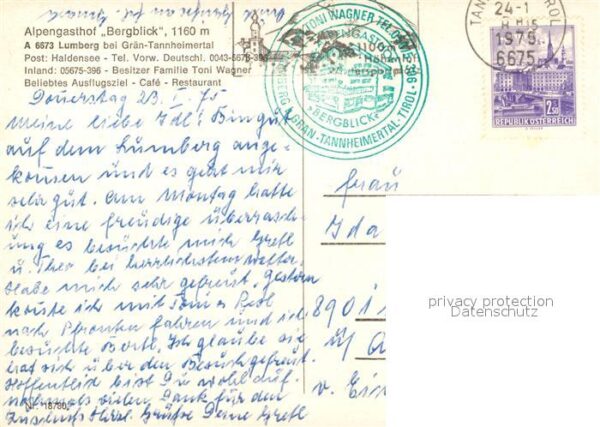 Alpengasthof „Bergblick", 1160 m
A 6673 Lumberg bei Grän-Tannheimertal
Post: Haldensee - Tel. Vorw. Deutschl. 0043-5675-396
Inland: 05675-396 - Besitzer Familie Toni Wagner
Beliebtes Ausflugsziel - Café - Restaurant
TONI WAGNER TEL 05675/396
ALPENGASTHOF
BERGBLICK
LUMBERG · GRÄN · TANNHEIMERTAL · TIROL
1100 m
Höhenluft
Wintersport
TANNHEIM TIROL
24-1
1979
6675
2.50
REPUBLIK ÖSTERREICH
Donnerstag 23. I. 75
Meine liebe Idl! Bin gut
auf dem Lumberg ange-
kommen und es geht mir
sehr gut. Am Montag hatte
ich eine freudige Überrasch-
ung es besuchte mich Gretl
u. Theo bei herrlichstem Wetter.
Habe mich sehr gefreut. Gestern
konnte ich mit Toni u. Resl
nach Pfronten fahren und ich
besuchte Berta. Ich glaube sie
hat sich über den Besuch gefreut.
Hoffentlich bist Du wohl auf.
nochmals vielen Dank für den
Grüße Deine Gretl
Frau
Ida
8901
v. Ein
Nr. 18760
privacy protection
Datenschutz